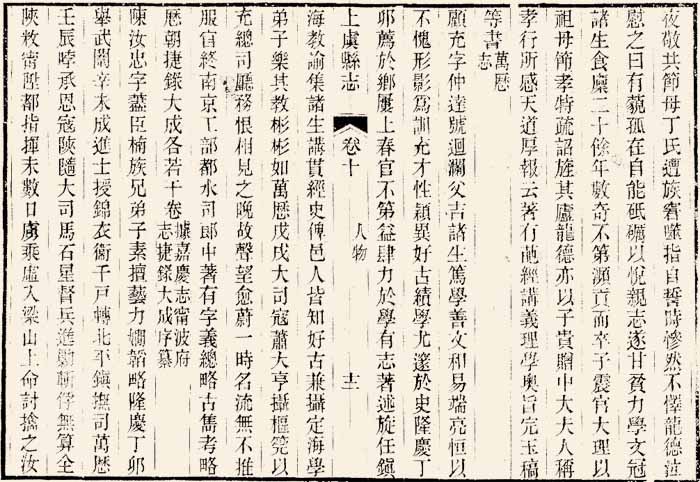 夜敬共節母丁氏遭族窘嚙指自誓時慘然不懌龍德泣
慰之曰有藐孤在自能砥礪以悅親志遂甘貧力學文冠
諸生食廩二十餘年數奇不第瀕貢而卒子震官大理以
祖母節孝特疏詔旌其廬龍德亦以子貴贈中大夫人稱
孝行所感天道厚報云著有葩經講義理學奧旨完玉稿
等書萬歷志
顧充字仲達號迴瀾父吉諸生篤學善文和易端亮恒以
不愧形影爲訓充才性穎異好古績學尤邃於史隆慶丁
卯薦於鄉屢上春官不第益肆力於學有志著述旋任鎮
上虞縣志 卷十 人物 十二
海教諭集諸生講貫經史俾邑人皆知好古兼攝定海學
弟子樂其教彬彬如萬歷戊戌大司寇蕭大亨攝樞筦以
充總司廳務恨相見之晚故聲望愈蔚一時名流無不推
服官終南京工部都水司郎中著有字義總略古雋考略
歷朝捷錄大成各若干卷據嘉慶志甯波府志捷錄大成序纂
陳汝忠字藎臣楠族兄弟子素擅藝力嫺韜略隆慶丁卯
舉武闈辛未成進士授錦衣衞千戶轉北平鎮撫司萬歷
壬辰哱承恩寇陝隨大司馬石星督兵進勦斬俘無算全
陝敉甯陞都指揮未數日虜乘虛入梁山上命討擒之汝